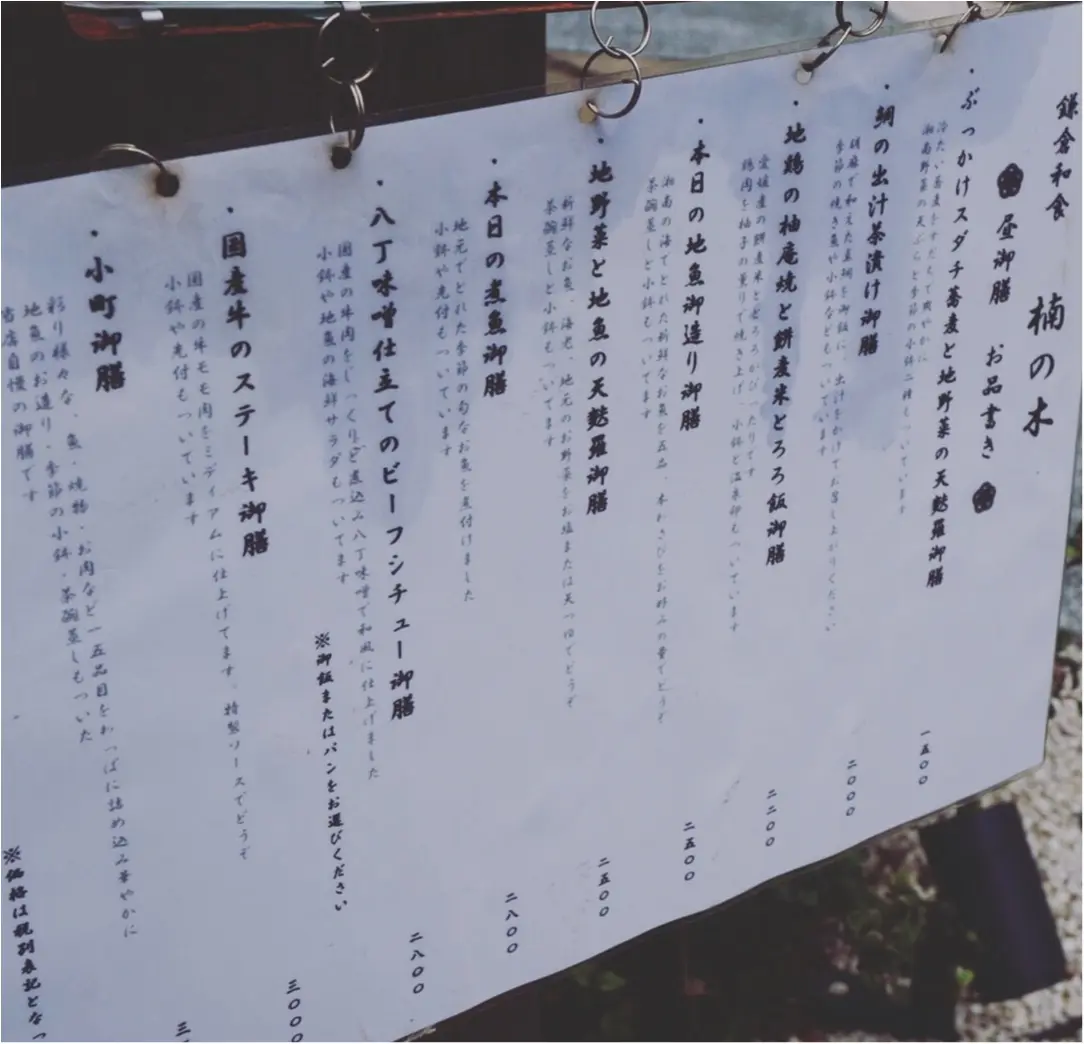 鎌倉和食
楠の木
昼御膳 お品書き
・ぶっかけスダチ蕎麦と地野菜の天麩羅御膳
冷たい蕎麦をすだちで爽やかに
湘南野菜の天ぷらと季節の小鉢二種もついています
一五〇〇
・鯛の出汁茶漬け御膳
胡麻で和えた真鯛を御飯に、出汁をかけてお召し上がりください
季節の焼き魚や小鉢などもついています
二〇〇〇
・地鶏の柚庵焼と餅麦米とろろ飯御膳
愛媛産の餅麦米ととろろがぴったりです
鶏肉を柚子の薫りで焼き上げ 小鉢と温泉卵もついています
二二〇〇
・本日の地魚御造り御膳
湘南の海でとれた新鮮なお魚を五品、本わさびをお好みの量でどうぞ
茶碗蒸しと小鉢もついてます
二五〇〇
・地野菜と地魚の天麩羅御膳
新鮮なお魚、海老、地元のお野菜をお塩または天つゆでどうぞ
茶碗蒸しと小鉢もついてます
二五〇〇
・本日の煮魚御膳
地元でとれた季節の旬なお魚を煮付けました
小鉢や先付もついています
二八〇〇
・八丁味噌仕立てのビーフシチュー御膳
国産の牛肉をじっくりと煮込み八丁味噌で和風に仕上げました
小鉢や地魚の海鮮サラダもついてます
※御飯またはパンをお選びください
二八〇〇
・国産牛のステーキ御膳
国産の牛モモ肉をミディアムに仕上げてます。特製ソースでどうぞ
小鉢や先付もついています
三〇〇〇
・小町御膳
彩り様々な、魚・焼物・お肉など一五品目をわっぱに詰め込み華やかに
地魚のお造り・季節の小鉢・茶碗蒸しもついた
当店自慢の御膳です
三
※価格は税別表記とな